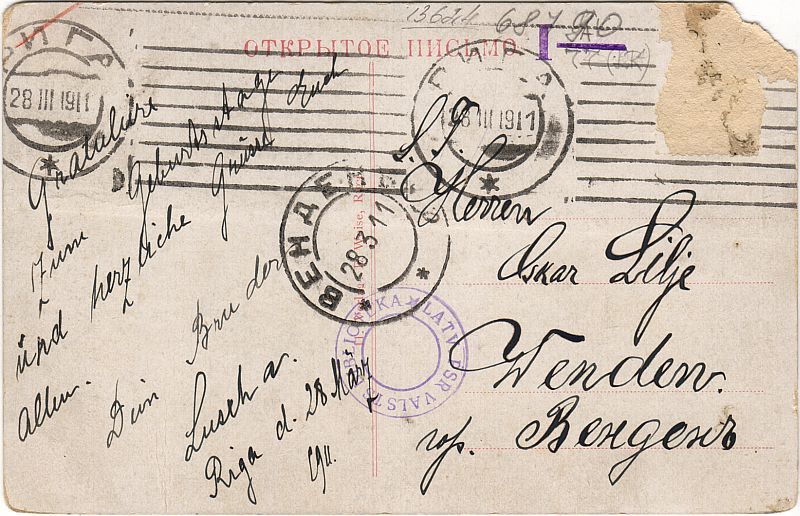 13624 687
ОТКРЫТОЕ ПИСЬМО
РИГА
28 III 1911
РИГА
28 III 1911
ВЕНДЕНЪ
28 3 11
BIBLIOTEKA ★ LATV PSR VALSTS
Gratuliere
zum Geburtstage
und herzliche Grüsse Euch
allen.
Dein Bruder
Riga d. 28 März
1911.
S. H.
Herren
Oskar Lilje
Wenden.
гор. Венденъ